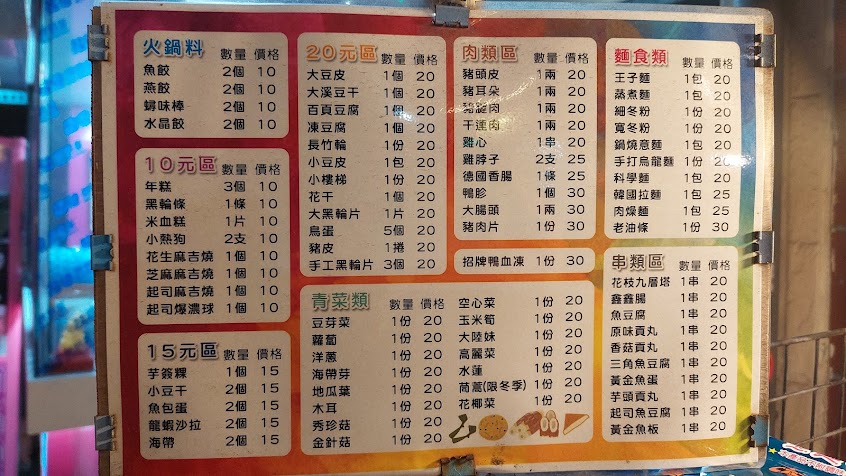 火鍋料 數量 價格
魚餃 2個 10
燕餃 2個 10
蟳味棒 2個 10
水晶餃 2個 10
10元區 數量 價格
年糕 3個 10
黑輪條 1條 10
米血糕 1片 10
小熱狗 2支 10
花生麻吉燒 1個 10
芝麻麻吉燒 1個 10
起司麻吉燒 1個 10
起司爆濃球 1個 10
15元區 數量 價格
芋簽粿 1個 15
小豆干 2個 15
魚包蛋 2個 15
龍蝦沙拉 2個 15
海帶 2個 15
20元區 數量 價格
大豆皮 1個 20
大溪豆干 1個 20
百頁豆腐 1個 20
凍豆腐 1個 20
長竹輪 1份 20
小豆皮 1包 20
小樓梯 1份 20
花干 1個 20
大黑輪片 1片 20
鳥蛋 5個 20
豬皮 1捲 20
手工黑輪片 3個 20
肉類區 數量 價格
豬頭皮 1兩 20
豬耳朵 1兩 20
肉 1兩 20
干連肉 1兩 20
雞心 1串 20
雞脖子 2支 25
德國香腸 1條 25
鴨胗 1個 30
大腸頭 1兩 30
豬肉片 1份 30
招牌鴨血凍 1份 30
麵食類 數量 價格
王子麵 1包 20
蒸煮麵 1包 20
細冬粉 1份 20
寬冬粉 1份 20
鍋燒意麵 1份 20
手打烏龍麵 1份 20
科學麵 1包 20
韓國拉麵 1包 25
肉燥麵 1包 25
老油條 1份 30
青菜類 數量 價格
豆芽菜 1份 20
蘿蔔 1份 20
洋蔥 1份 20
海帶芽 1份 20
地瓜葉 1份 20
木耳 1份 20
秀珍菇 1份 20
金針菇 1份 20
空心菜 1份 20
玉米筍 1份 20
大陸妹 1份 20
高麗菜 1份 20
水蓮 1份 20
茼蒿(限冬季) 1份 20
花椰菜 1份 20
串類區 數量 價格
花枝九層塔 1串 20
鑫鑫腸 1串 20
魚豆腐 1串 20
原味貢丸 1串 20
香菇貢丸 1串 20
三角魚豆腐 1串 20
黃金魚蛋 1串 20
芋頭貢丸 1串 20
起司魚豆腐 1串 20
黃金魚板 1串 20